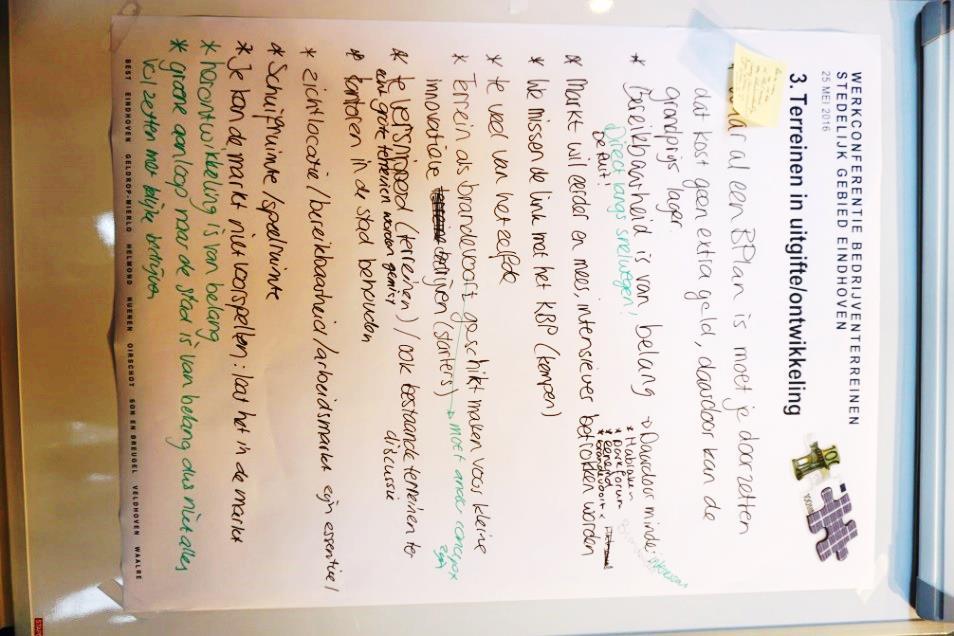 WERKCONFERENTIE BEDRIJVENTERREINEN
STEDELIJK GEBIED EINDHOVEN
25 MEI 2016
3. Terreinen in uitgifte/ontwikkeling
al een BPlan is moet je doorzetten
dat kost geen extra geld, daardoor kan de
grondprijs lager.
* Bereikbaarheid is van belang → Daardoor minder
Direct langs snelwegen!
De Run!
* Habraken
* Dareforum
* eeneind
* brandevoort
* Markt wil eerder en meer, intensiever betrokken worden
* We missen de link met het KBP (kempen)
* te veel van hetzelfde
* Terrein als brandevoort geschikt maken voor kleine
innovatieve bedrijven (starters) → moet ander concept
zijn
* te versnipperd (terreinen) / ook bestaande terreinen ter
discussie
echt grote terreinen worden gemist
* kantoren in de stad behouden
* zichtlocatie/bereikbaarheid/arbeidsmarkt zijn essentieel
* Schuifruimte/speelruimte
* Je kan de markt niet voorspellen: laat het in de markt
* herontwikkeling is van belang
* groene aanloop naar de stad is van belang dus niet alles
vol zetten met lelijke bedrijven
BEST EINDHOVEN GELDROP-MIERLO HELMOND NUENEN OIRSCHOT SON EN BREUGEL VELDHOVEN WAALRE